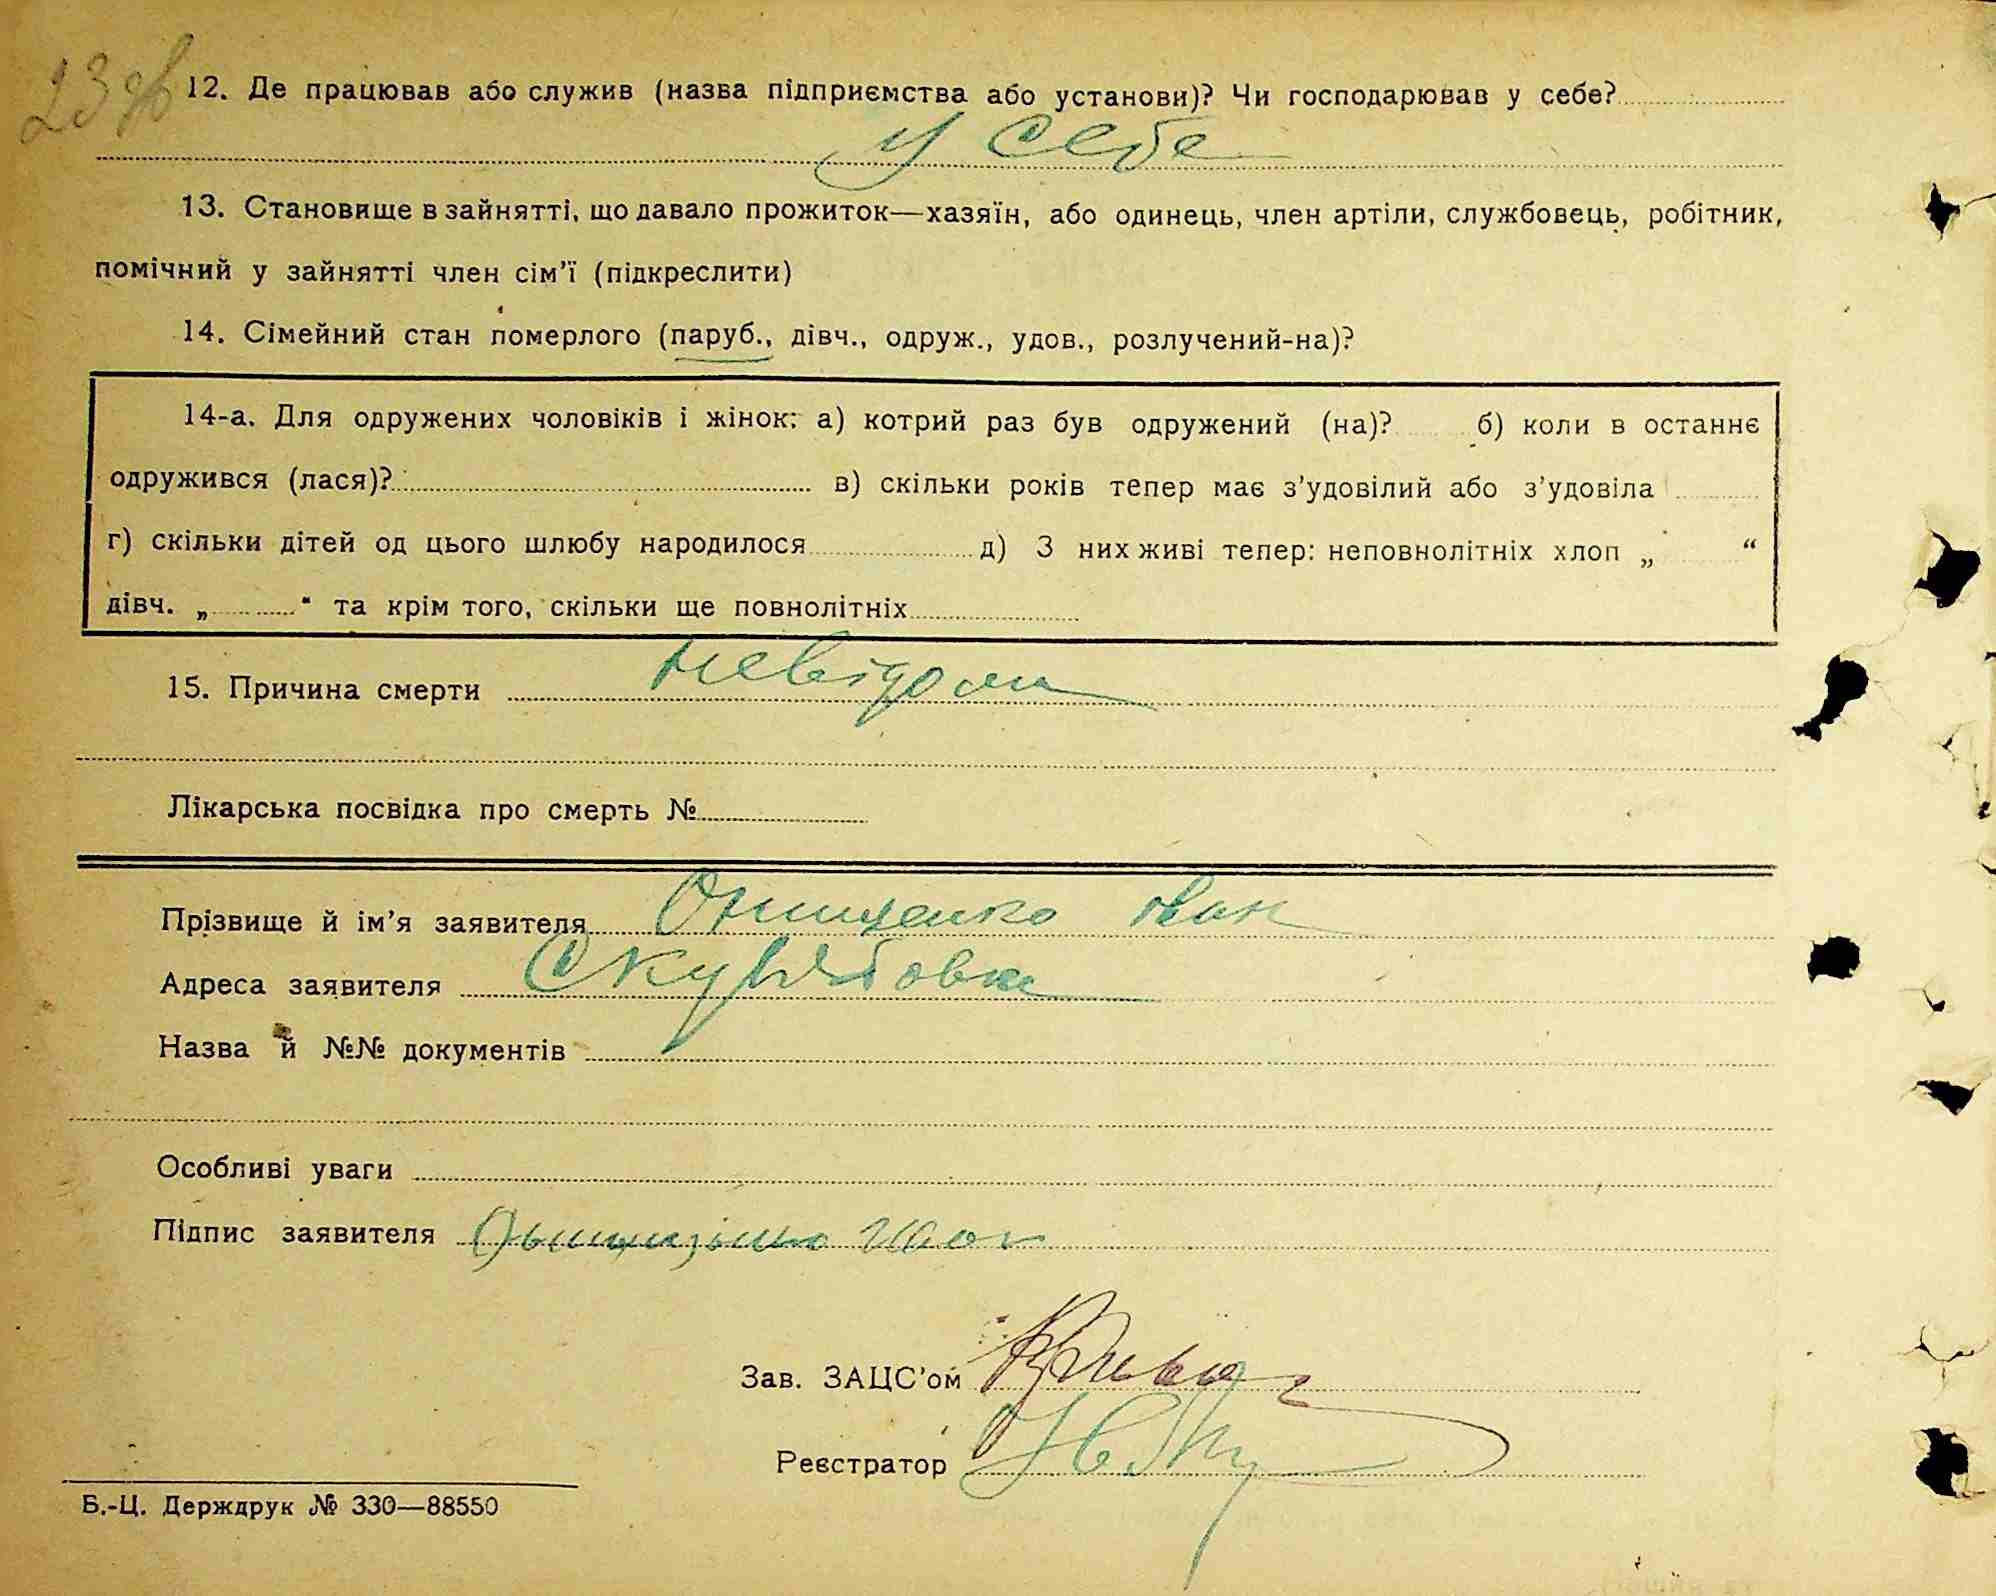 23 зв
12. Де працював або служив (назва підприємства або установи)? Чи господарював у себе?
У себе
13. Становище в зайнятті, що давало прожиток—хазяїн, або одинець, член артіли, службовець, робітник,
помічний у зайнятті член сім'ї (підкреслити)
14. Сімейний стан померлого (паруб., дівч., одруж., удов., розлучений-на)?
14-а. Для одружених чоловіків і жінок: а) котрий раз був одружений (на)? б) коли в останнє
одружився (лася)? в) скільки років тепер має з'удовілий або з'удовіла
г) скільки дітей од цього шлюбу народилося д) З них живі тепер: неповнолітніх хлоп „ “
дівч. „ “ та крім того, скільки ще повнолітніх
15. Причина смерти невідома
Лікарська посвідка про смерть №
Прізвище й ім'я заявителя Онищенко Іван
Адреса заявителя
Назва й №№ документів
Особливі уваги
Підпис заявителя
Зав. ЗАЦС'ом
Реєстратор
Б.-Ц. Держдрук № 330—88550